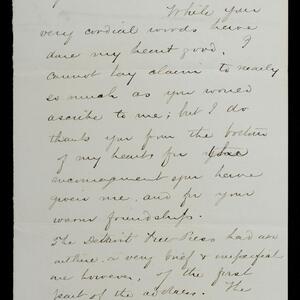 While your
very cordial words have
done my heart good, I
cannot lay claim to nearly
so much as you would
ascribe to me; but I do
thank you from the bottom
of my heart for the
encouragement you have
given me, and for your
warm friendship.
The Detroit Free Press had an
outline, a very brief & imperfect
one however, of the first
part of the address. The